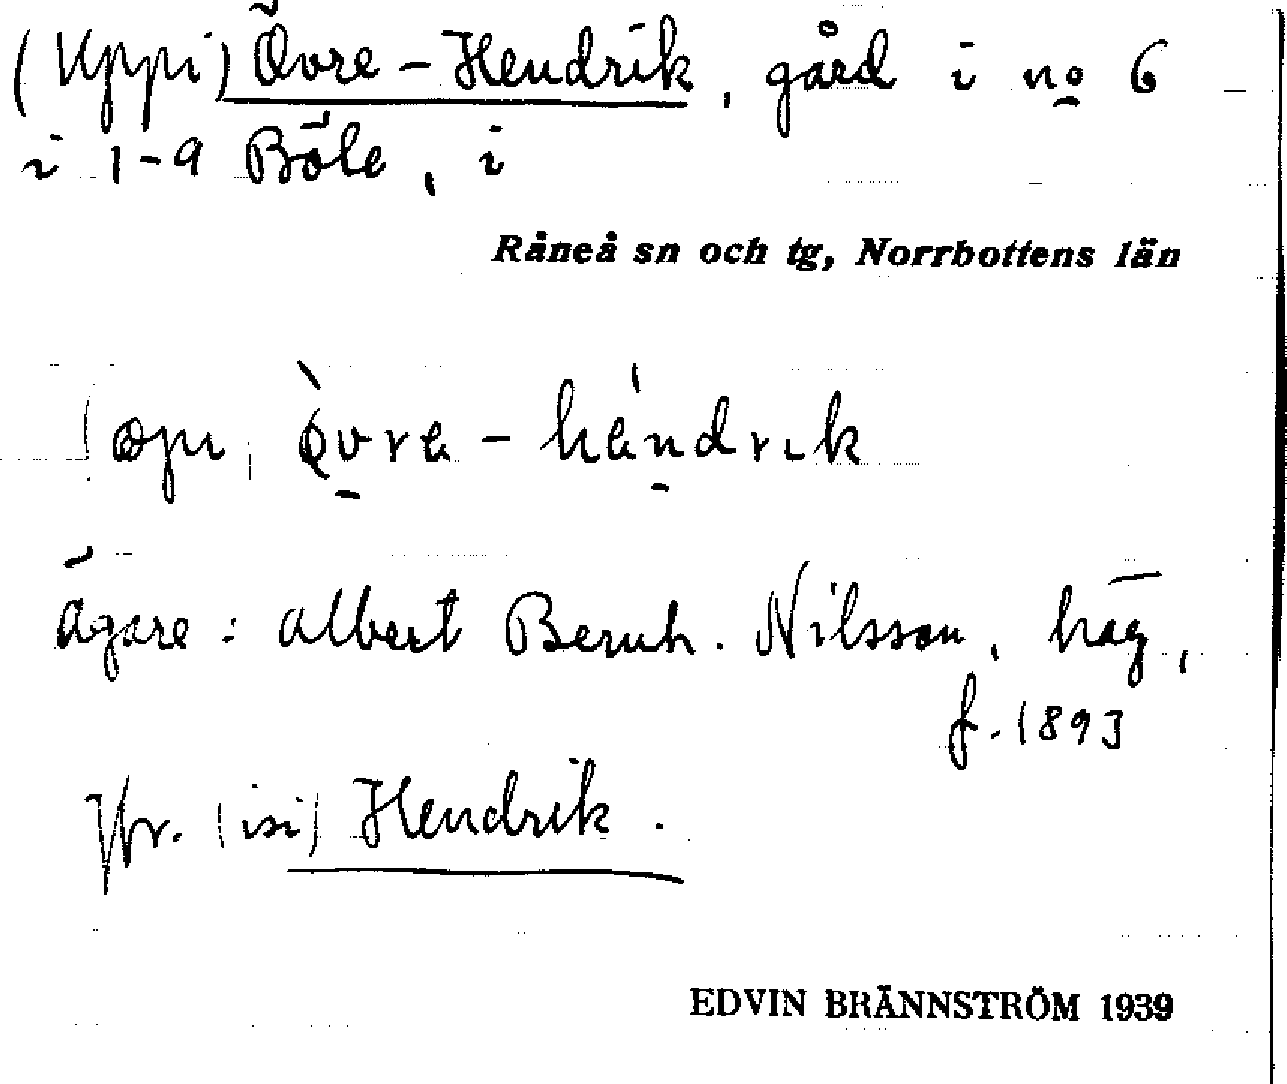 (Uppi) Övre-Hendrik, gård i no 6
i 1-9 Böle, i
Råneå sn och tg, Norrbottens län
Ägare: Albert Bernh. Nilsson, häg,
f. 1893
Jfr. (isi) Hendrik.
EDVIN BRÄNNSTRÖM 1939